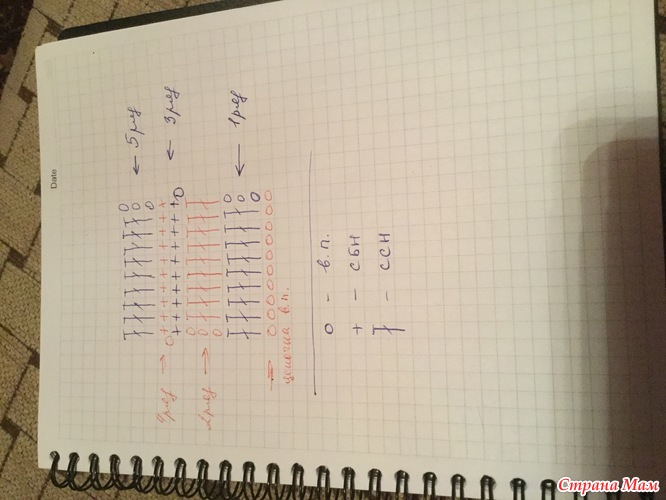 Date
← 5 ряд
4 ряд →
← 3 ряд
2 ряд →
← 1 ряд
→
цепочка в.п.
0 - в.п.
+ - сбн
- ссн
Страна Мам